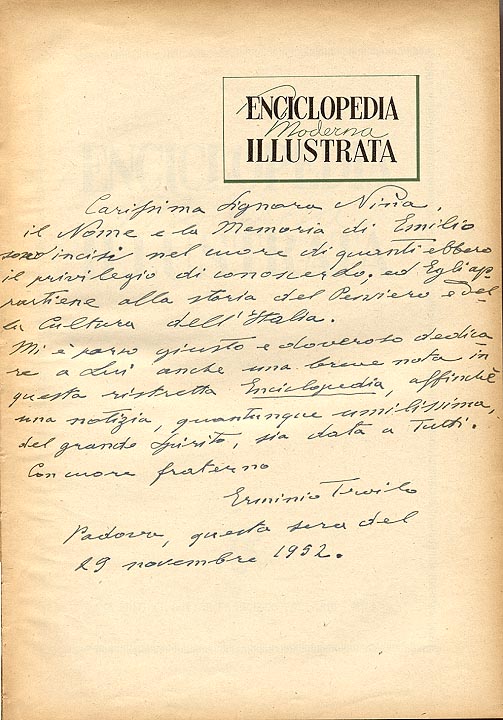 ENCICLOPEDIA
Moderna
ILLUSTRATA
Carissima Signora Nina,
il Nome e la Memoria di Emilio
sono incisi nel cuore di quanti ebbero
il privilegio di conoscerlo; ed Egli ap
partiene alla storia del Pensiero e del
la Cultura dell'Italia.
Mi è parso giusto e doveroso dedica
re a Lui anche una breve nota in
questa ristretta Enciclopedia, affinchè
una notizia, quantunque umilissima,
del grande Spirito, sia data a Tutti.
Con cuore fraterno
Erminio Troilo
Padova, questa sera del
29 novembre 1952.